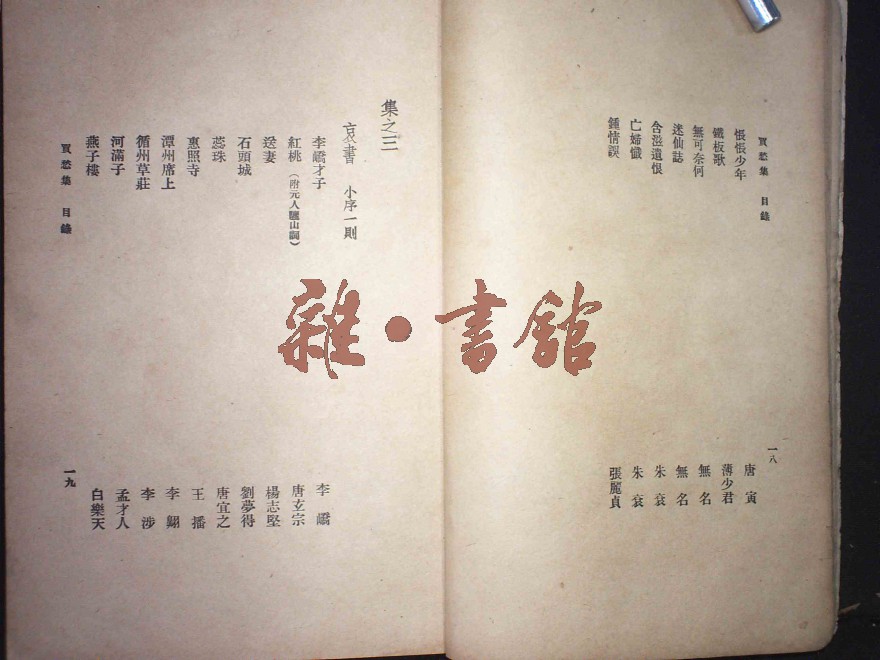 買愁集 目錄
悵悵少年 唐寅
鐵板歌 薄少君
無可奈何 無名
迷仙誌 無名
含滋遺恨 朱袞
亡婦懺 朱袞
鍾情誤 張麗貞
一八
集之三
哀書 小序一則
李嶠才子 李嶠
紅桃（附元人驪山詞） 唐玄宗
送妻 楊志堅
石頭城 劉夢得
蕊珠 唐宜之
惠照寺 王播
潭州席上 李翺
循州草莊 李涉
河滿子 孟才人
燕子樓 白樂天
買愁集 目錄
一九
雜·書館